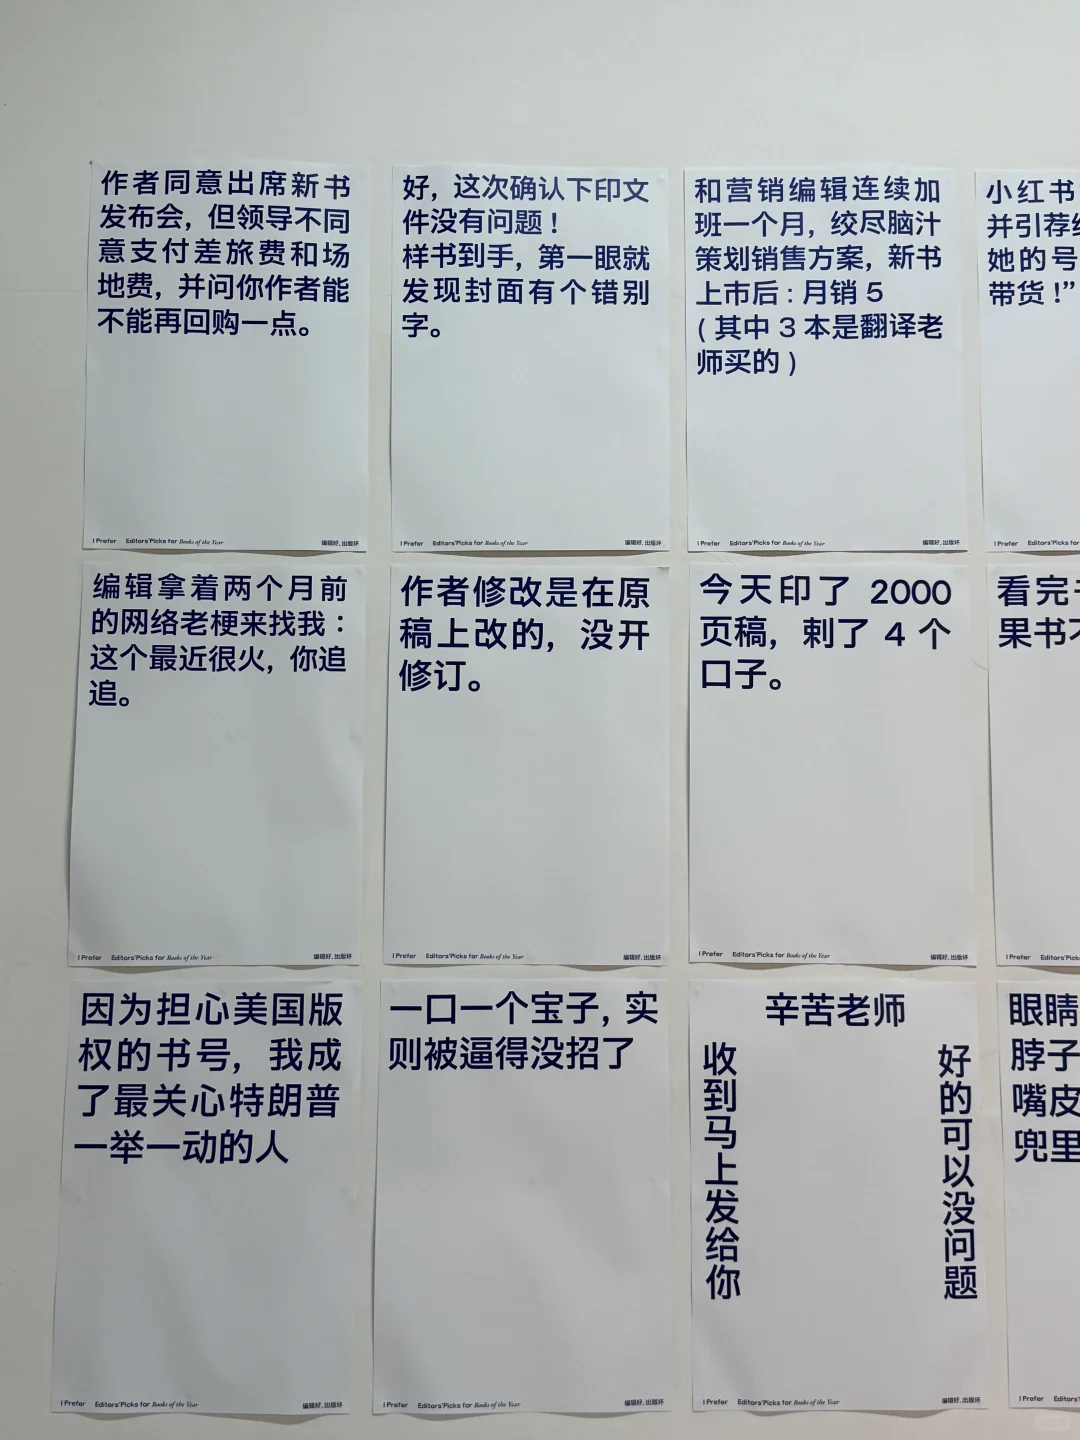 作者同意出席新书
发布会，但领导不同
意支付差旅费和场
地费，并问你作者能
不能再回购一点。
I Prefer Editors'Picks for Books of the Year 编辑好，出版坏
好，这次确认下印文
件没有问题！
样书到手，第一眼就
发现封面有个错别
字。
I Prefer Editors'Picks for Books of the Year 编辑好，出版坏
和营销编辑连续加
班一个月，绞尽脑汁
策划销售方案，新书
上市后：月销 5
（其中 3 本是翻译老
师买的）
I Prefer Editors'Picks for Books of the Year 编辑好，出版坏
小红书
并引荐
她的号
带货！”
I Prefer Editors'Picks for Books
编辑拿着两个月前
的网络老梗来找我：
这个最近很火，你追
追。
I Prefer Editors'Picks for Books of the Year 编辑好，出版坏
作者修改是在原
稿上改的，没开
修订。
I Prefer Editors'Picks for Books of the Year 编辑好，出版坏
今天印了 2000
页稿，剌了 4 个
口子。
I Prefer Editors'Picks for Books of the Year 编辑好，出版坏
看完
果书
I Prefer Editors'Picks
因为担心美国版
权的书号，我成
了最关心特朗普
一举一动的人
I Prefer Editors'Picks for Books of the Year 编辑好，出版坏
一口一个宝子，实
则被逼得没招了
I Prefer Editors'Picks for Books of the Year 编辑好，出版坏
辛苦老师
收到马上发给你
好的可以没问题
I Prefer Editors'Picks for Books of the Year 编辑好，出版坏
眼睛
脖子
嘴皮
兜里
I Prefer